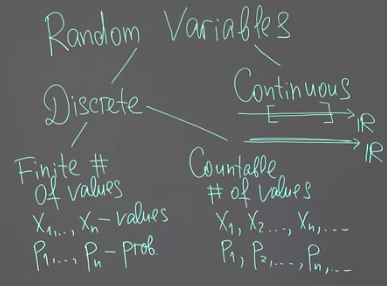 Random Variables
Discrete
Continuous
[ ] IR
IR
Finite #
of values
X₁,..., Xₙ – values
P₁,..., Pₙ – prob.
Countable
# of values
X₁, X₂ ..., Xₙ,...
P₁, P₂,..., Pₙ,...